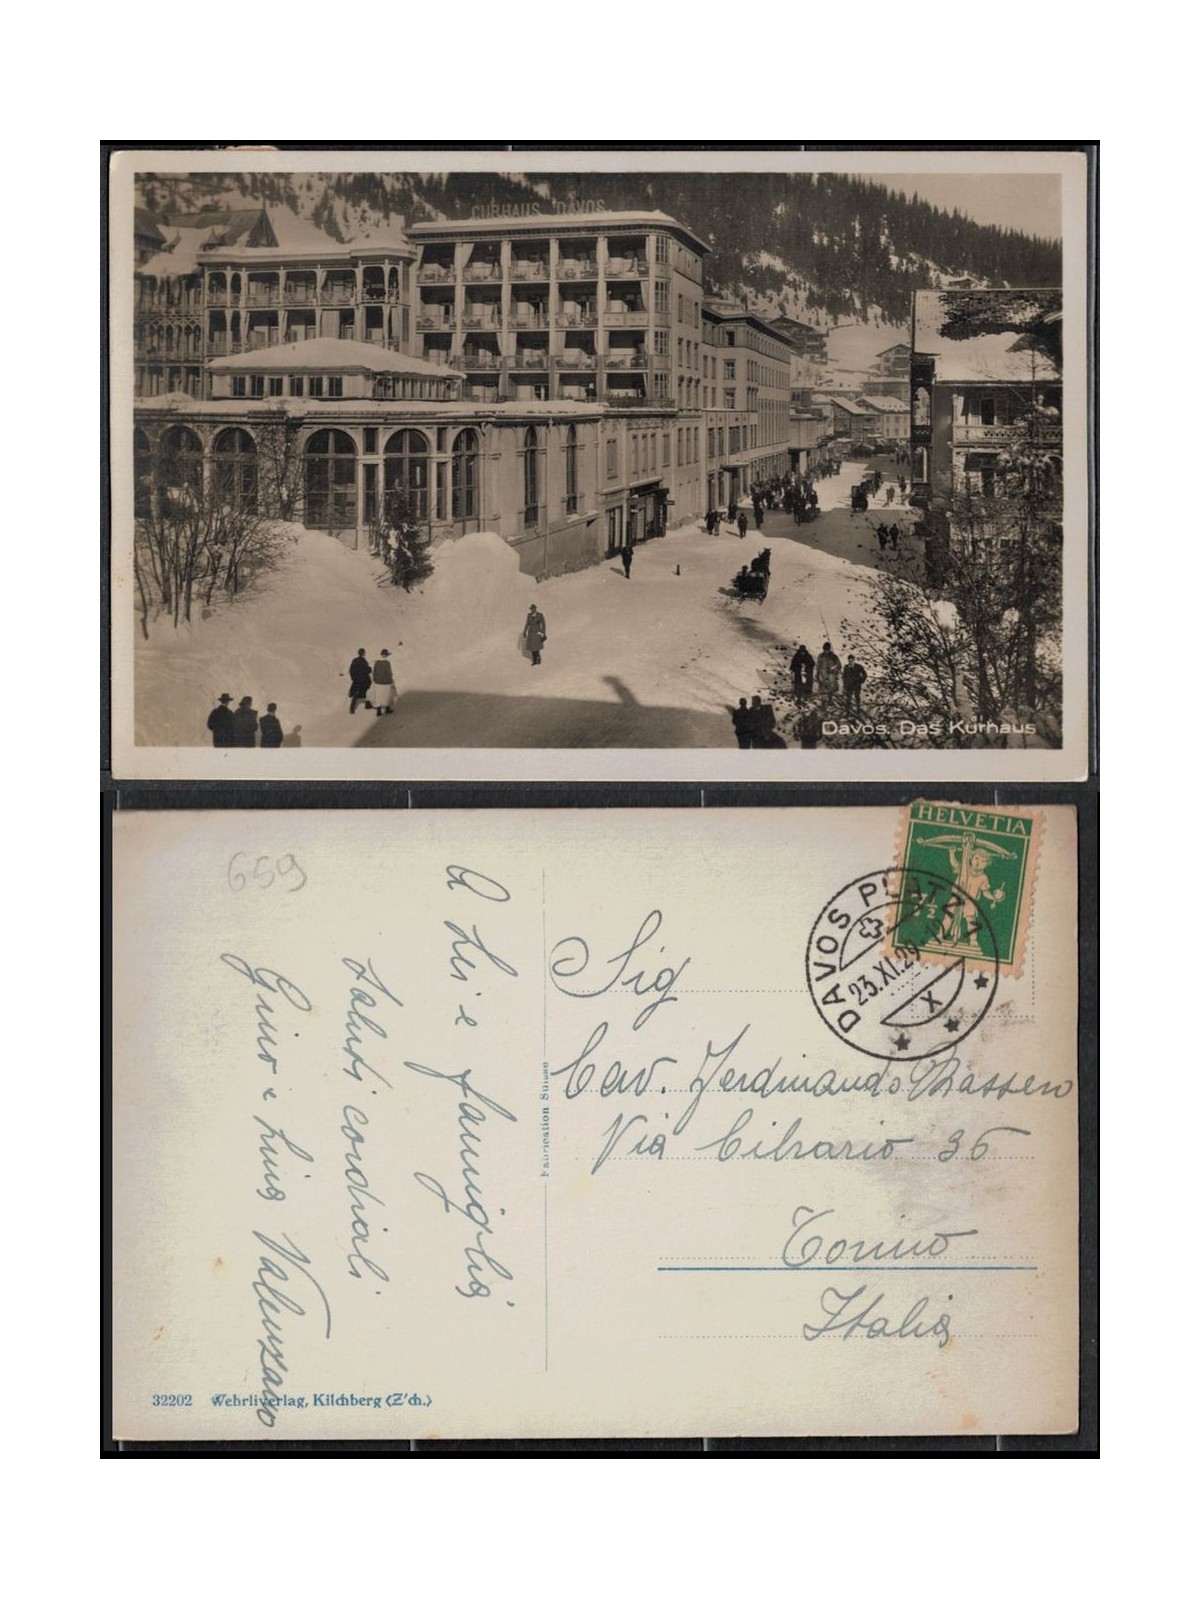 CURHAUS DAVOS
Davos. Das Kurhaus
659
HELVETIA
7½
DAVOS PLATZ 1
23.XI.29-12
X
A Lei e famiglia
saluti cordiali
Gino e Lina Valenzano
Fabrication Suisse
Sig
Cav. Ferdinando
Via Cibrario 36
Torino
Italia
32202 Wehrliverlag, Kilchberg (Z'ch.)